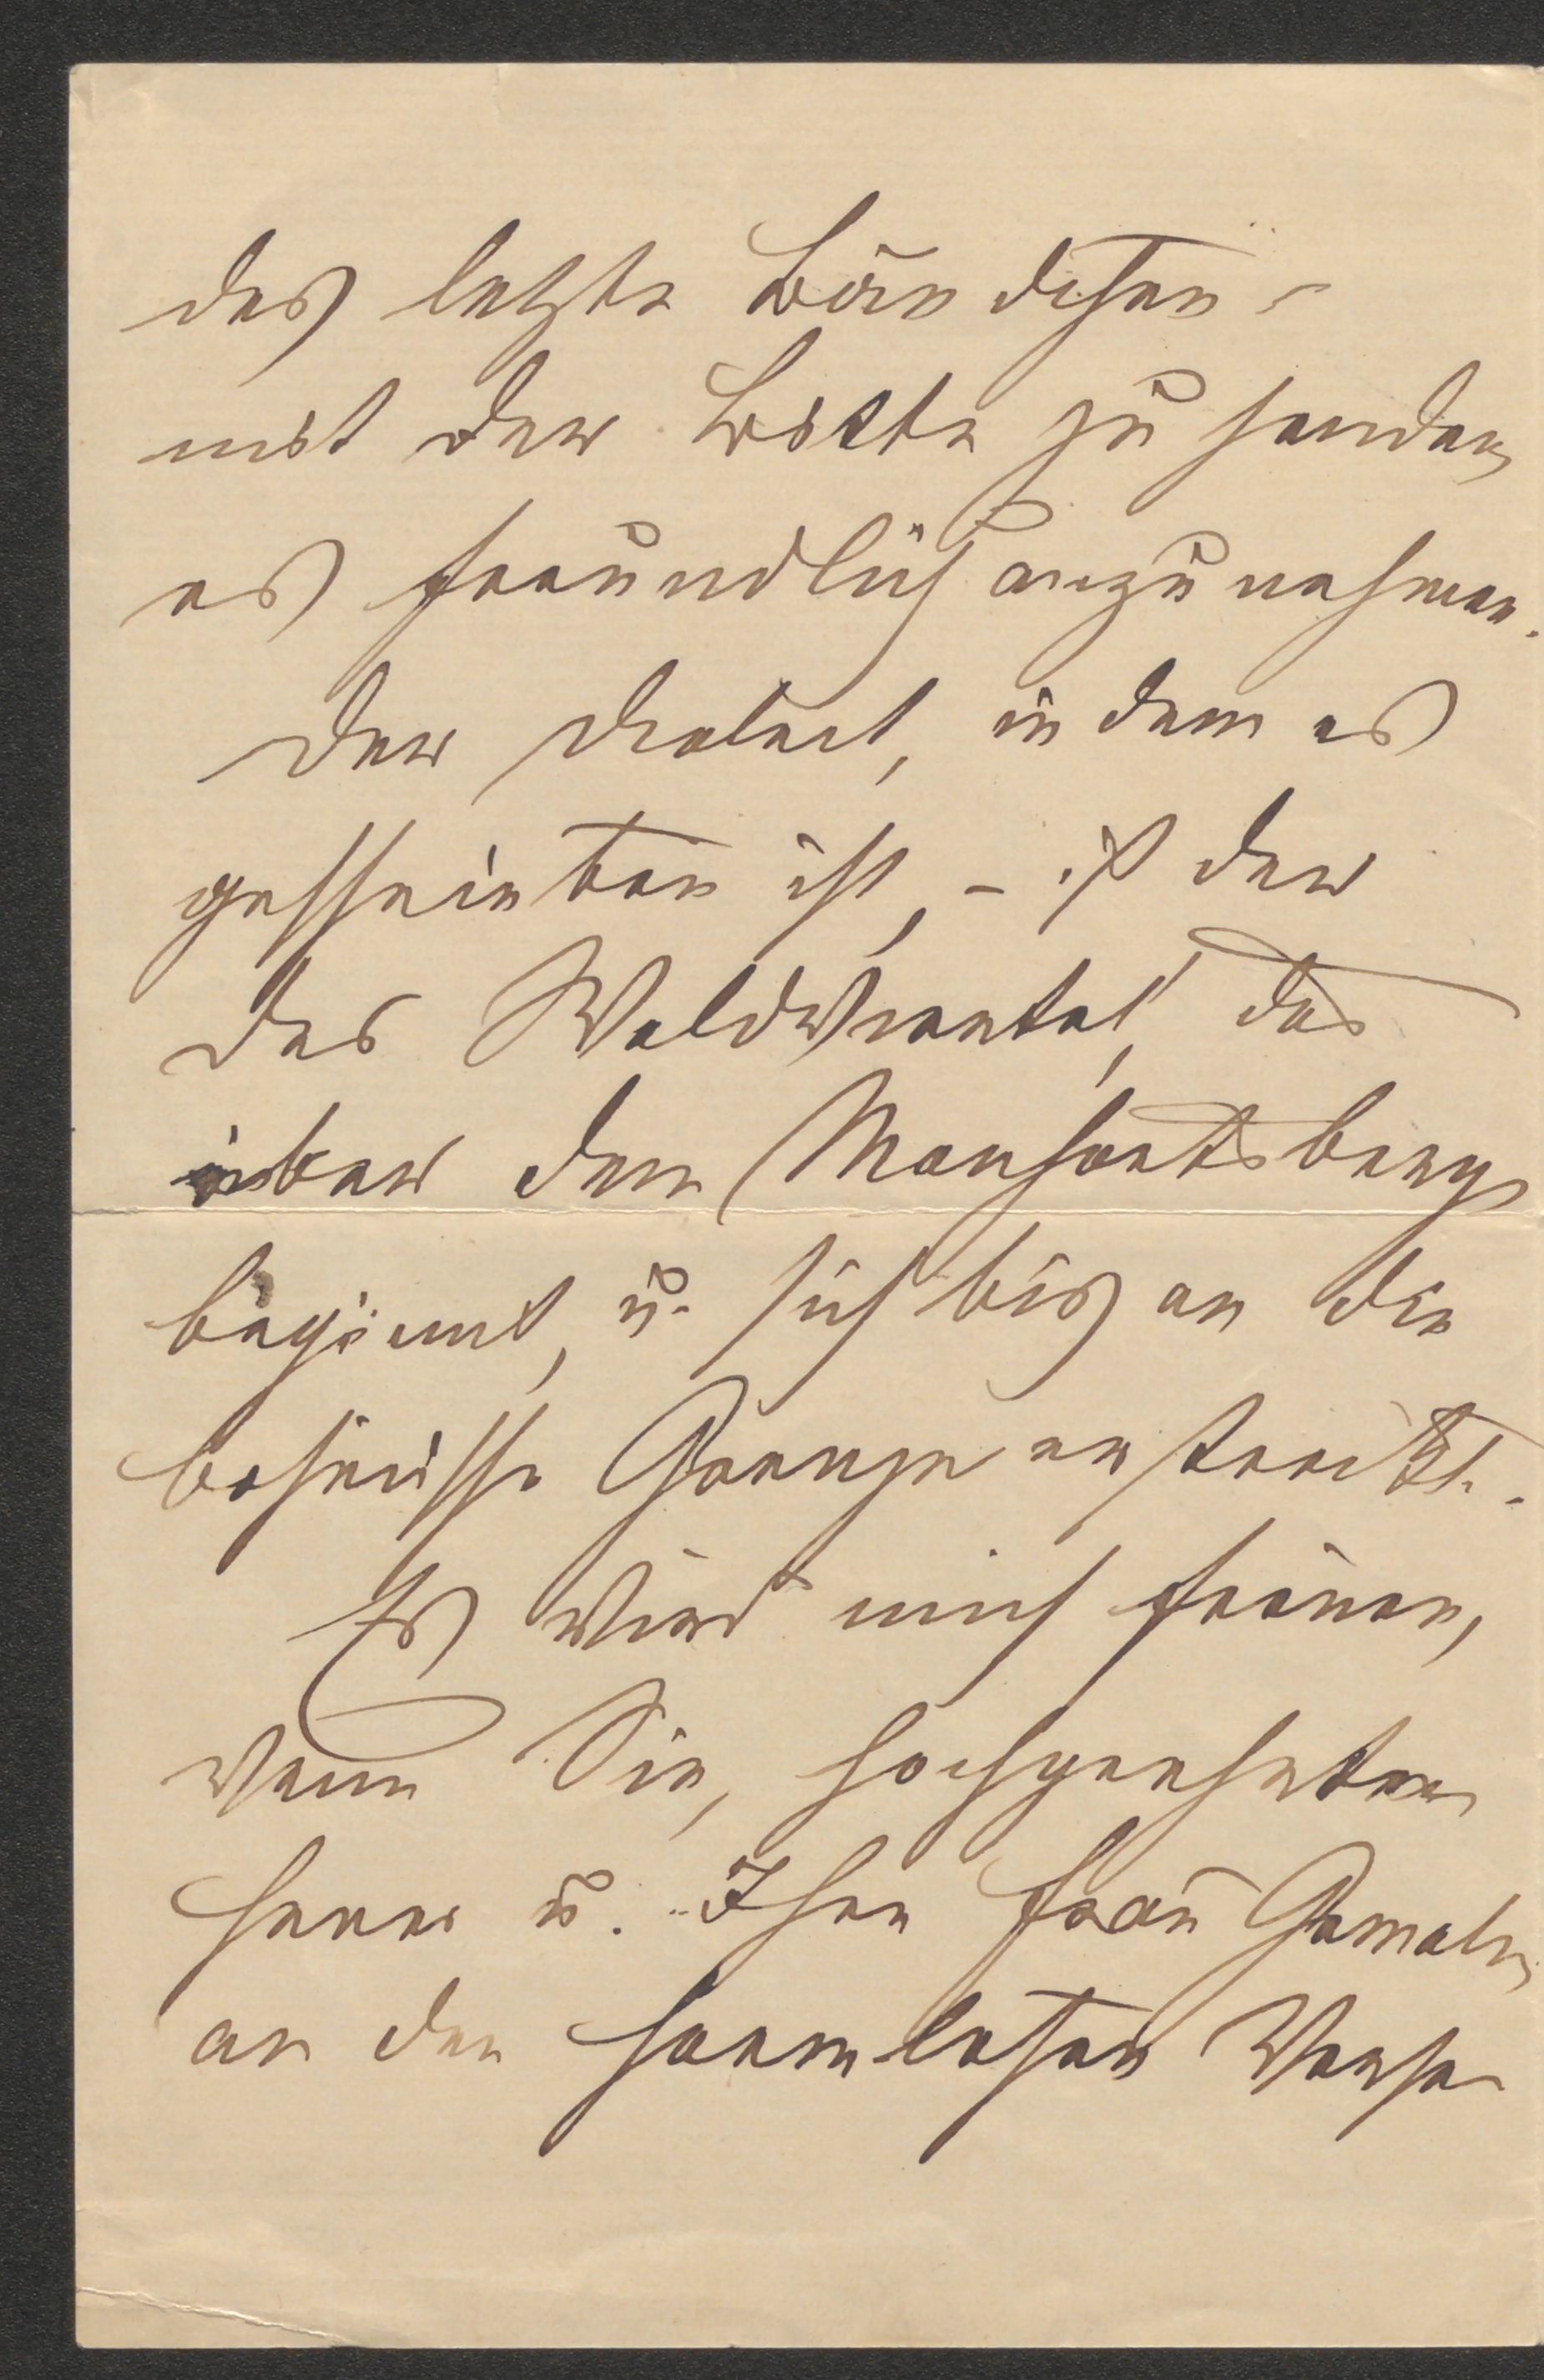 das letzte Bändchen -
mit der Bitte zu senden,
es freundlich anzunehmen.
Der Dialect, in dem es
geschrieben ist, - ist der
des Waldviertel, das
über dem Manhartsberge
beginnt, u. sich bis an die
böhmische Grenze erstreckt.
Es wird mich freuen,
wenn Sie, hochgeehrter
Herr u. Ihre Frau Gemalin
an den harmlosen Verse